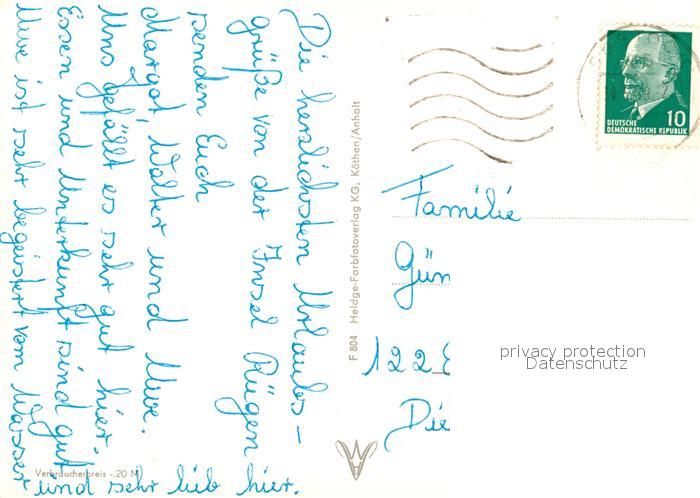 Die herzlichsten Urlaubs-
grüße von der Insel Rügen
senden Euch
Margot, Walter und Uwe.
Uns gefällt es sehr gut hier.
Essen und Unterkunft sind gut
Uwe ist sehr begeistert vom Wasser
und sehr lieb hier.
Verbraucherpreis -.20 M
F 804 Heldge-Farbfotoverlag KG, Köthen/Anhalt
DEUTSCHE 10
DEMOKRATISCHE REPUBLIK
Familie
Gün
122
Die
privacy protection
Datenschutz